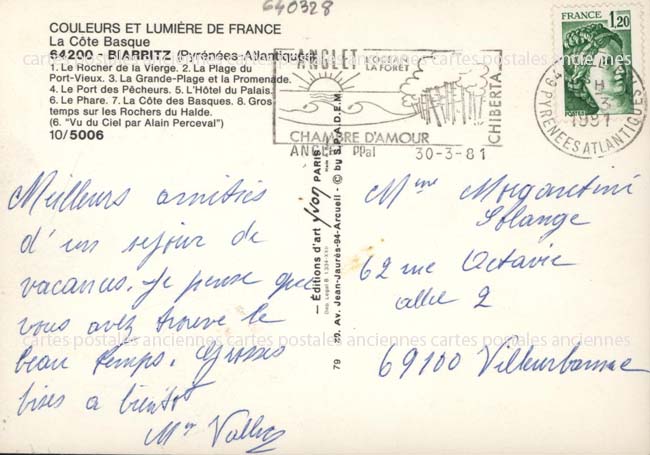 640328
COULEURS ET LUMIÈRE DE FRANCE
La Côte Basque
64200 - BIARRITZ (Pyrénées-Atlantiques)
1. Le Rocher de la Vierge. 2. La Plage du
Port-Vieux. 3. La Grande-Plage et la Promenade.
4. Le Port des Pêcheurs. 5. L'Hôtel du Palais.
6. Le Phare. 7. La Côte des Basques. 8. Gros
temps sur les Rochers du Halde.
(6. "Vu du Ciel par Alain Perceval")
10/5006
ANGLET
L'OCEAN
LA FORÊT
CHIBERTA
CHAMBRE D'AMOUR
ANGLET Ppal 30-3-81
FRANCE
1,20
POSTES
1981
PYRENEES ATLANTIQUES
Meilleurs amitiés
d'un sejour de
vacances. Je pense que
vous avez trouve le
beau temps. Grosses
bises a bientot
Mme Morgantini
Solange
62 rue Octavie
allee 2
69100 Villeurbanne
— Editions d'art yvon PARIS
79 49, Av. Jean-Jaurès-94-Arcueil - © by S.P.A.D.E.M.
cartes postales anciennes cartes postales anciennes cartes postales anciennes